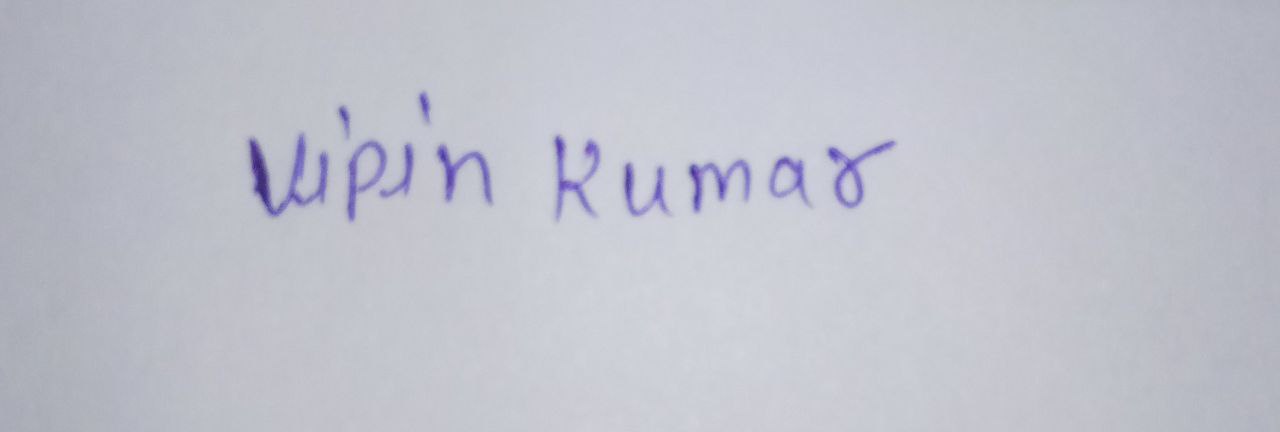 Vipin Kumar